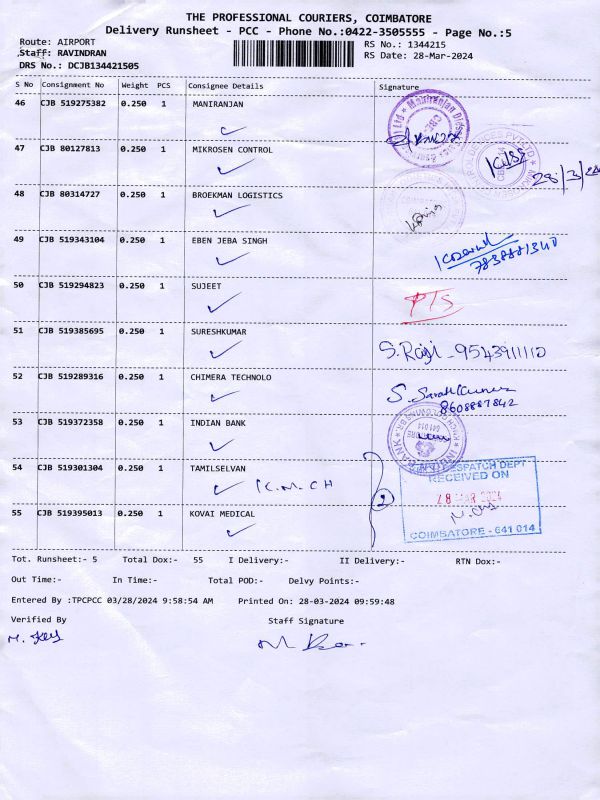 THE PROFESSIONAL COURIERS, COIMBATORE
Delivery Runsheet - PCC - Phone No.:0422-3505555 - Page No.:5
Route: AIRPORT
RS No.: 1344215
Staff: RAVINDRAN
RS Date: 28-Mar-2024
DRS No.: DCJB134421505
S No Consignment No Weight PCS Consignee Details Signature
46 CJB 519275382 0.250 1 MANIRANJAN
47 CJB 80127813 0.250 1 MIKROSEN CONTROL
28/3/24
48 CJB 80314727 0.250 1 BROEKMAN LOGISTICS
49 CJB 519343104 0.250 1 EBEN JEBA SINGH
7838881340
50 CJB 519294823 0.250 1 SUJEET
PTS
51 CJB 519385695 0.250 1 SURESHKUMAR
S. Raji - 9543911110
52 CJB 519289316 0.250 1 CHIMERA TECHNOLO
8608887842
53 CJB 519372358 0.250 1 INDIAN BANK
INDIAN BANK
641 014
54 CJB 519301304 0.250 1 TAMILSELVAN
K.M.CH
2
DESPATCH DEPT
RECEIVED ON
28 MAR 2024
COIMBATORE - 641 014
55 CJB 519395013 0.250 1 KOVAI MEDICAL
Tot. Runsheet:- 5 Total Dox:- 55 I Delivery:- II Delivery:- RTN Dox:-
Out Time:- In Time:- Total POD:- Delvy Points:-
Entered By :TPCPCC 03/28/2024 9:58:54 AM Printed On: 28-03-2024 09:59:48
Verified By Staff Signature